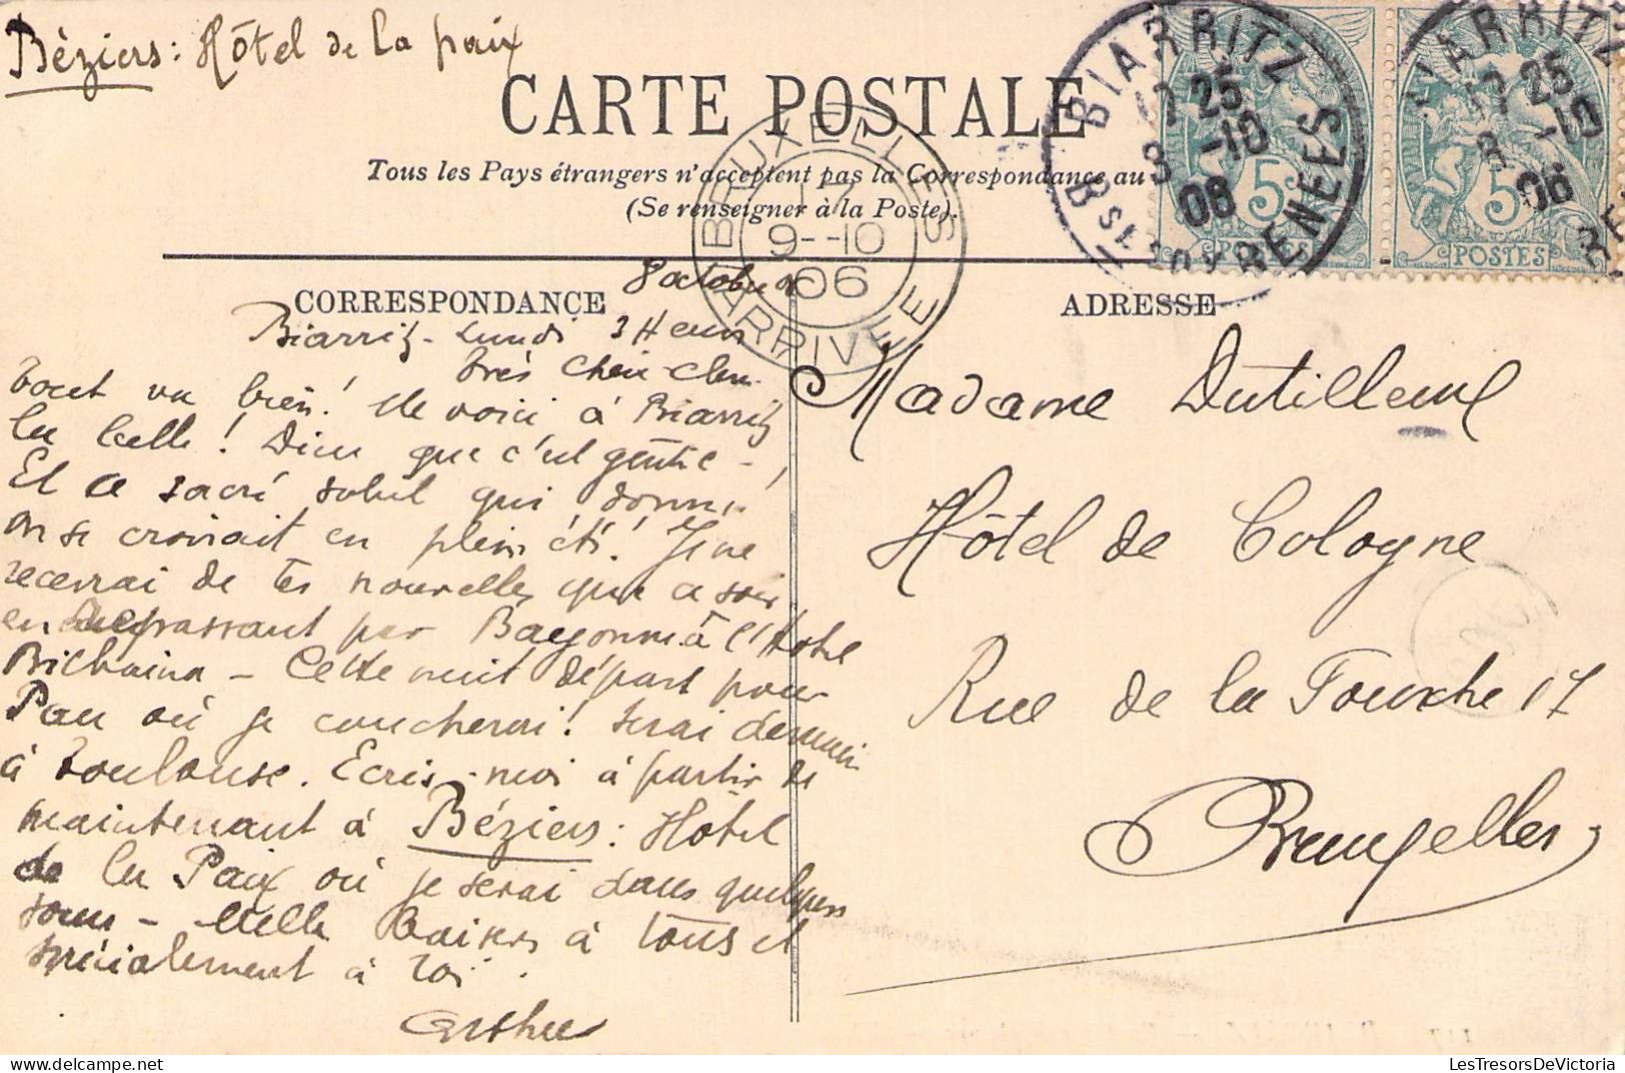 Béziers: Hôtel de la paix
CARTE POSTALE
Tous les Pays étrangers n'acceptent pas la Correspondance au
(Se renseigner à la Poste).
BIARRITZ
25
8 -10
06
BSES PYRENEES
BIARRITZ
25
8 -10
06
5
POSTES
5
POSTES
BRUXELLES
9--10
06
ARRIVEE
CORRESPONDANCE
ADRESSE
8 octobre 06
Biarritz - Lundi 3 Heures
Très chère
tout va bien! Me voici à Biarritz
la belle! Dieu que c'est gentil -
Et ce sacré soleil qui donne
on se croirait en plein été! Je ne
recevrai de tes nouvelles que ce soir
en passant par Bayonne à l'Hôtel
Bichaina - Cette nuit départ pour
Pau où je coucherai! Serai demain
à Toulouse. Ecris-moi à partir de
maintenant à Béziers: Hôtel
de la Paix où je serai dans quelques
jours - Mille baisers à tous et
spécialement à toi.
Arthur
Madame Dutilleux
Hôtel de Cologne
Rue de la Fourche 17
Bruxelles
LesTresorsDeVictoria